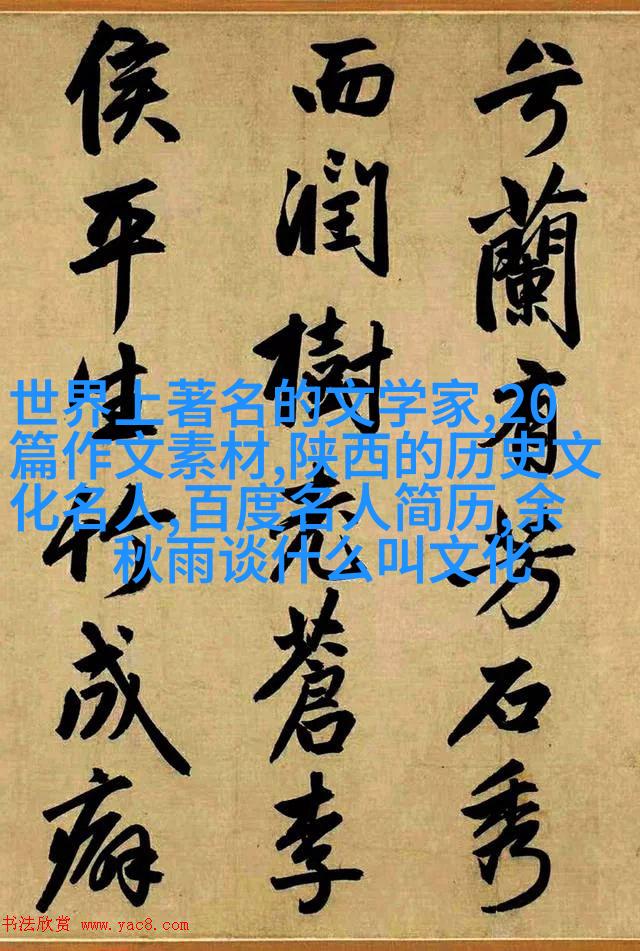 兮蘭有芳石秀
而潤樹蒼李
侯平生竹成癖
世界上著名的文学家,20
篇作文素材,陕西的历史文
化名人,百度名人简历,余
秋雨谈什么叫文化
书法欣赏 www.yac8.com